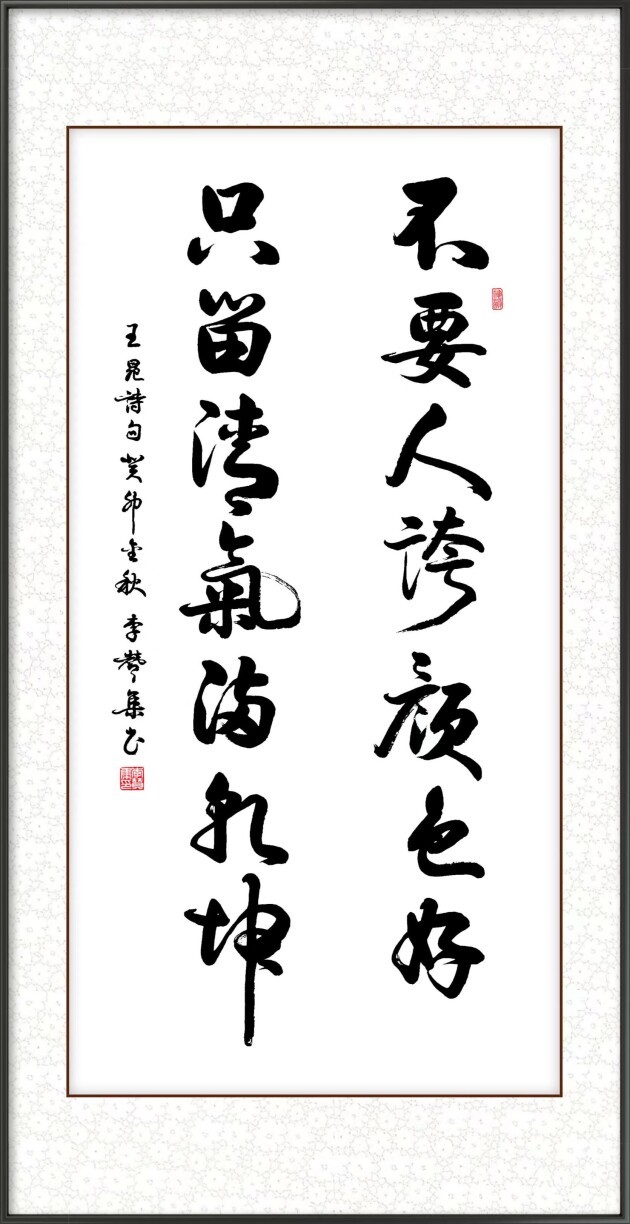 不要人誇顔色好
只留清氣滿乾坤
王冕詩句癸卯金秋李贊集书